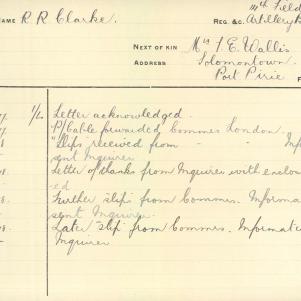 NAME R R Clarke.
REG. &c. Artillery
NEXT OF KIN Mrs I. E. Wallis
ADDRESS Solomontown
Port Pirie
1/L Letter acknowledged.
P/Cable forwarded Commes London.
"Slips received from " Inf
sgnt Inquirer
Letter of thanks from Inquirer with enclos
ed
Further slip from Commes. Informa
sgnt Inquirer.
Later slip from Commes. Informati
Inquirer